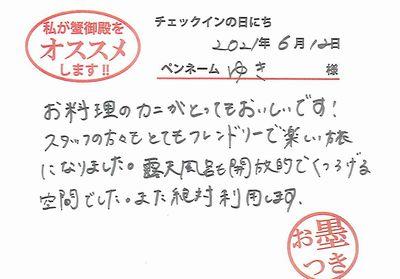 私が蟹御殿を
オススメ
します!!
チェックインの日にち
2021年 6月 12日
ペンネーム ゆき 様
お料理のカニがとってもおいしいです!
スタッフの方々もとてもフレンドリーで楽しい旅
になりました。露天風呂も開放的でくつろげる
空間でした。また絶対利用します。
お墨
つき